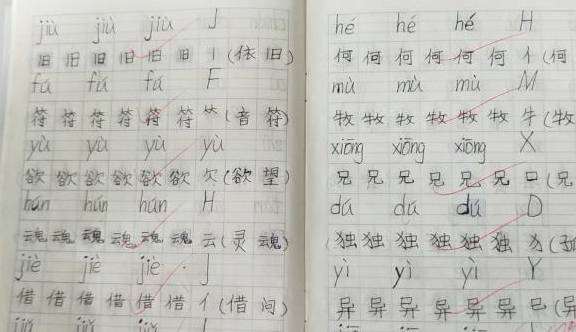 jiù jiù jiù J
旧 旧 旧 旧 旧 旧 丨 (依 旧)
fú fú fú F
符 符 符 符 符 符 ⺮ (音 符)
yù yù yù yù
欲 欲 欲 欲 欲 欲 欠 (欲 望)
hún hún hún H
魂 魂 魂 魂 魂 魂 云 (灵 魂)
jiè jiè jiè J
借 借 借 借 借 借 亻 (借 问)
hé hé hé H
何 何 何 何 何 何 亻 (何
mù mù mù M
牧 牧 牧 牧 牧 牧 牛 (牧
xiōng xiōng xiōng X
兄 兄 兄 兄 兄 兄 口 (兄
dú dú dú D
独 独 独 独 独 独 犭 (孤
yì yì yì Y
异 异 异 异 异 异 巳 (异